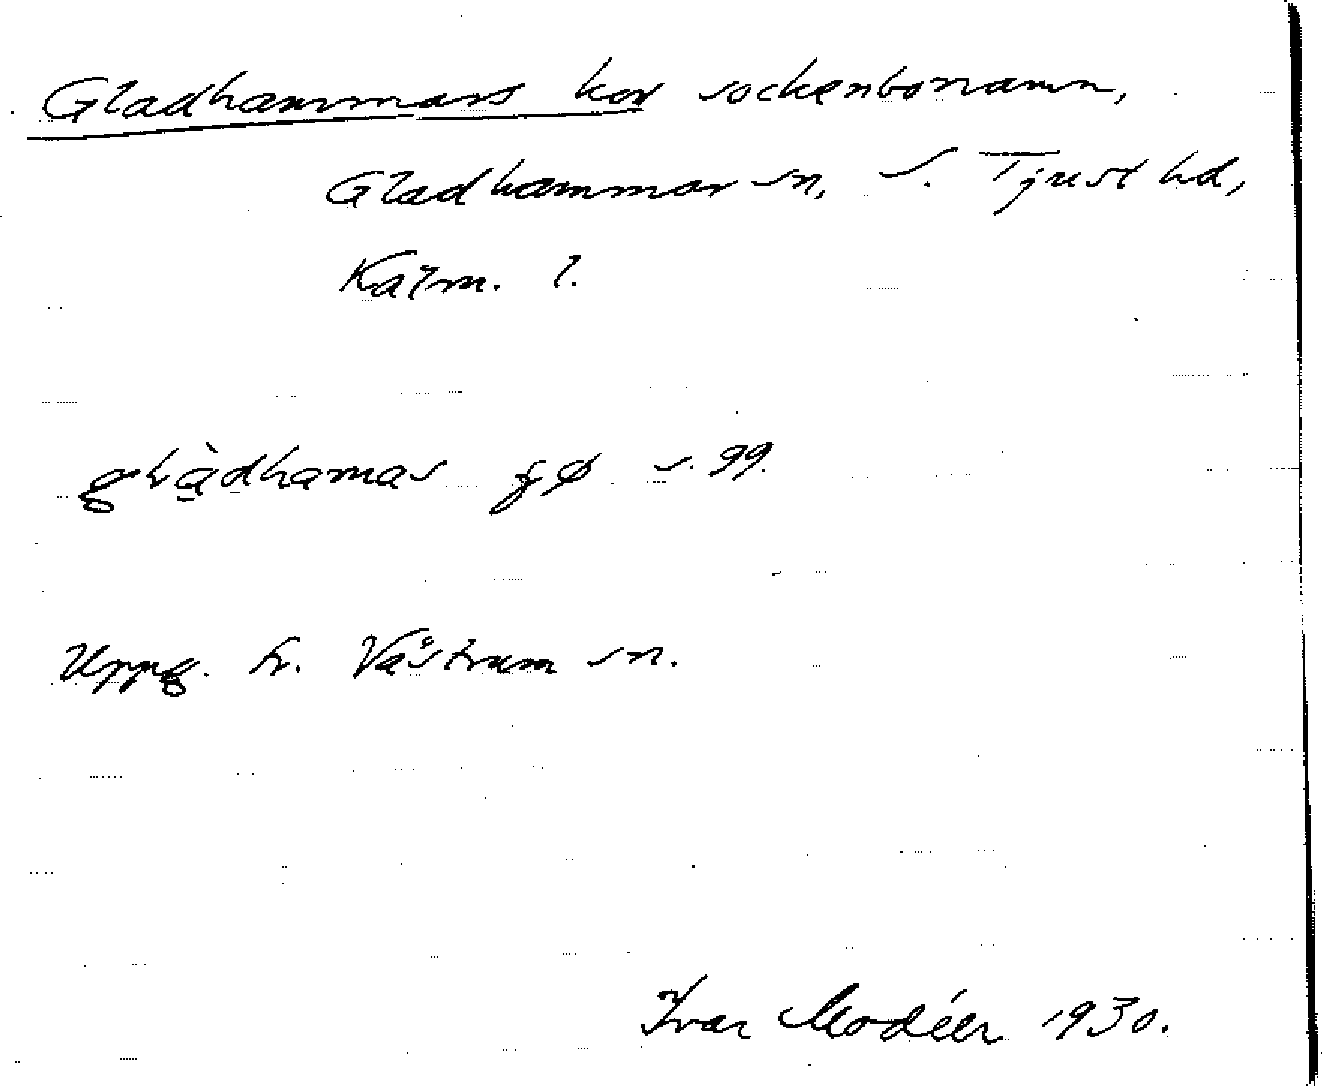 Gladhammars kor sockenbonamn,
Gladhammar sn, S. Tjust hd,
Kalm. l.
s. 99.
Uppg. fr. Västrum sn.
Ivar Modéer 1930.